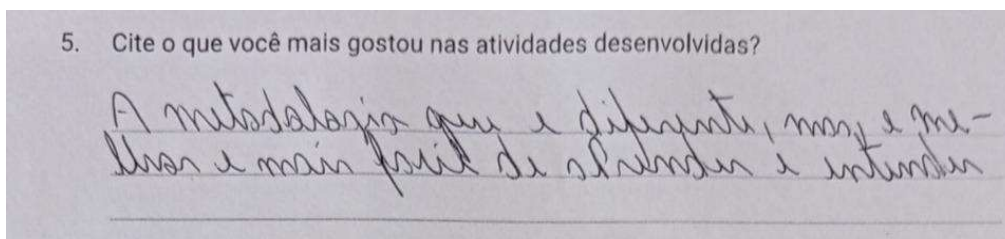 5. Cite o que você mais gostou nas atividades desenvolvidas?
A metodologia que e diferente, mas, e me-
lhor e mais facil de aprender e entender